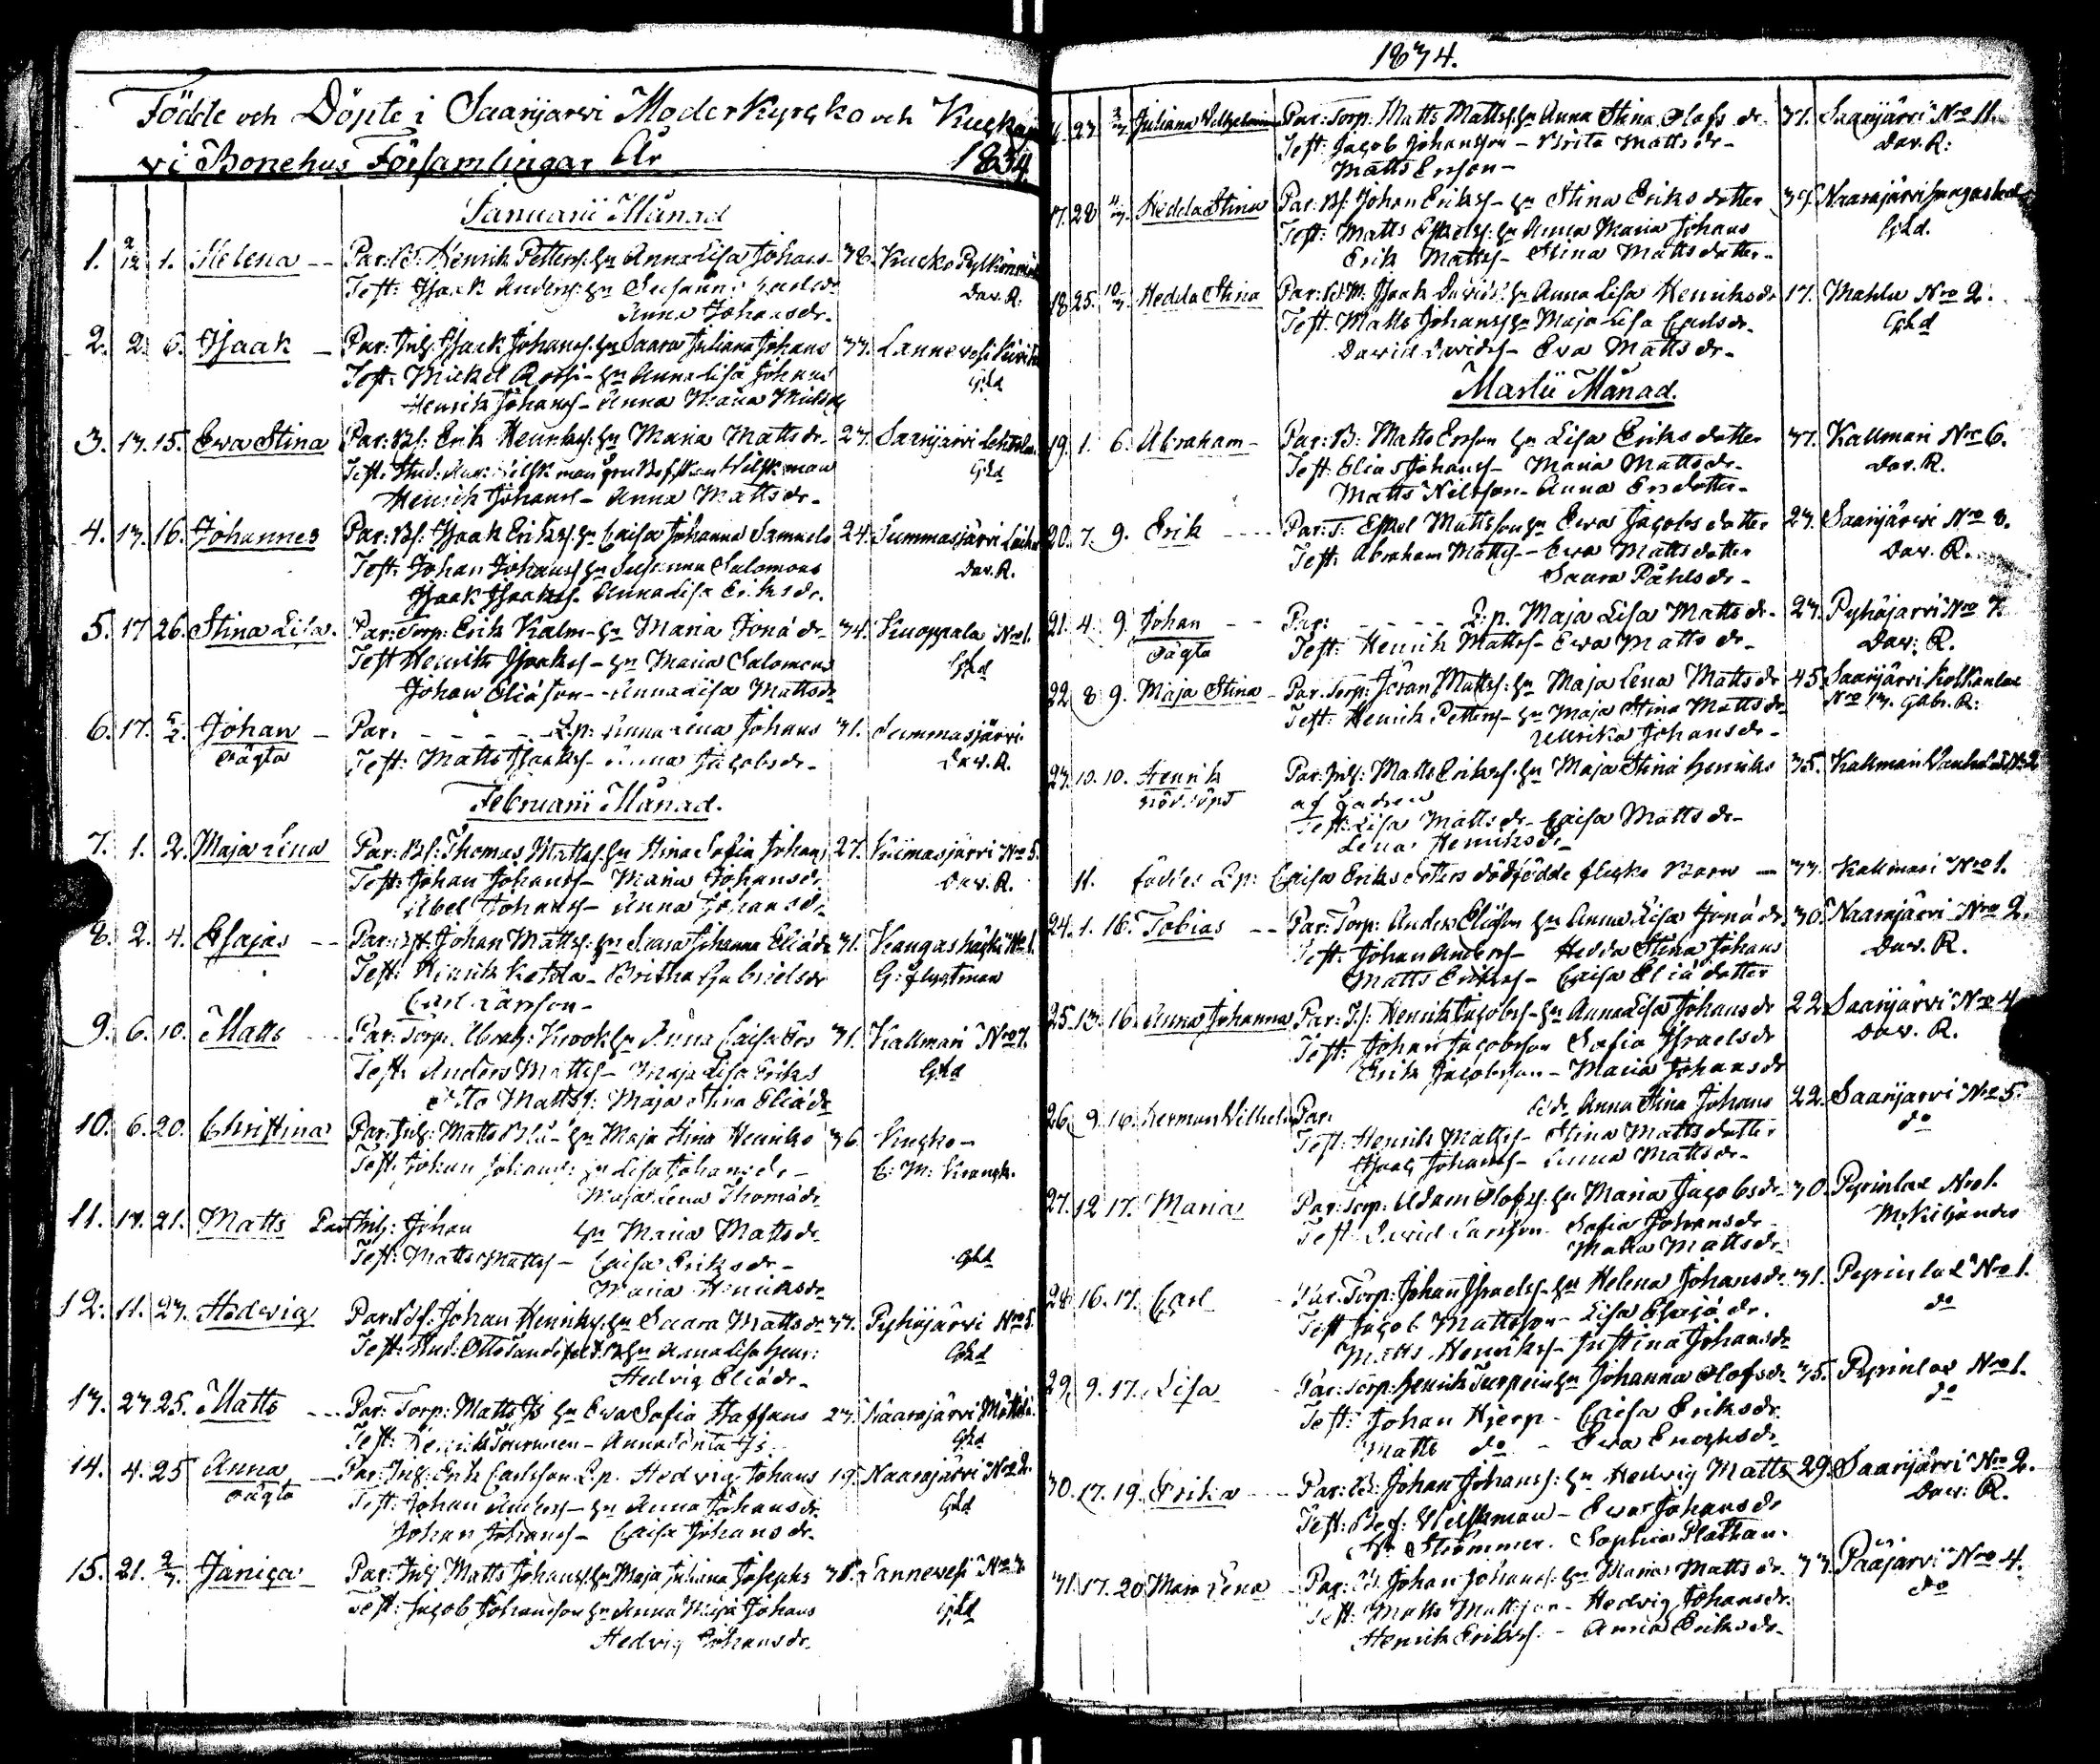 Födde och Döpte i Saarijärvi Moderkyrcko och
vi Bönehus Församlingar År 1834
Januarii Månad
1. 1. Helena -- Par: Henrik Petters: hu Anna Lisa Johans- 38.
Test: Isaak Anders: hu Susanna
Dav. R.
Anna Johansdr.
2. 2. 6. Isaak - Par: Inh: Isaak Johans: hu Saara Juliana Johans 33. Lannevesi
Test: Mickel hu Anna Lisa Johans
Ghd
Henrik Johans- Anna Maria
3. 13. 15. Ewa Stina Par: Bf: Erik Henriks: hu Maria Matts dr 23. Saarijärvi
Ghd
Henrik Johans- Anna Mattsdr-
4. 13. 16. Johannes Par: Bf: Isaak Eriks: hu Caisa Johanna Samuels 24. Summasjärvi
Test: Johan Johans: hu Susanna Salomons
Dav. R.
Isaak Isaaks- Anna Lisa Eriksdr.
5. 17 26. Stina Lisa. Par: Torp: Erik Kalm- hu Maria Jonädr 34. Kuoppala No 1.
Test Henrik Isaaks- hu Maria Salomons
Ghd
Johan Eliäson- Anna Lisa Mattsdr
6. 17. 5/2. Johan - Par: - - - - L.p: Anna Lena Johans 31. Summasjärvi
oägta Test: Matts Isaaks- Anna Jacobsdr- Dav. R.
Februarii Månad.
7. 1. 2. Maja Lena Par: Bf: Thomas Matts: hu Stina Sofia Johans 27. Kiimasjärvi No 5.
Test: Johan Johans- Maria Johansdr Dav. R.
Abel Johans- Anna Johansdr
8. 2. 4. Esajas -- Par: Johan Matts: hu Saara Johanna Eliädr 31. Kangashäcki No 1.
Test: Henrik Ketola- Britha Gabrielsdr
Carl Larsson-
9. 6. 10. Matts --- Par: Torp: Abrah: Krook hu Anna Caisa Ers 31. Kallmari No 7.
Test: Anders Matts- Maja Lisa Eriks Ghd
Matts: Maja Stina Eliädr
10. 6. 20. Christina Par: Inh: Matts hu Maja Stina Henriks 36.
Test: Johan Johans: hu Lisa Johansdr-
Maja Lena Thomädr
11. 17. 21. Matts Par: Inh: Johan hu Maria Mattsdr
Test: Matts Matts- Caisa Eriksdr- Ghd
Maria Henriksdr
12. 11. 23. Hedwig Par: Bf: Johan Henriks: hu Saara Mattsdr 33. Pyhäjärvi No 5.
Test: Stud: Otto hu Anna Lisa Henr: Ghd
Hedvig Eliädr-
13. 23. 25. Matts --- Par: Torp: Matts Is hu Ewa Sofia Staffans 23. Naarajärvi
Test: Henrik Tourunen- Anna Ghd
14. 4. 25 Anna - Par: Inh: Erik Carlsson L.p. Hedvig Johans 19. Naarajärvi No 2.
oägta Test: Johan Anders- hu Anna Johansdr Ghd
Johan Johans- Caisa Johansdr-
15. 21. 2/3. Janica- Par: Inh Matts Johans: hu Maja Juliana Josephs 38. Lannevesi No 3
Test: Jacob Johansson hu Anna Maja Johans Ghd
Hedvig Johansdr-
1834.
16. 23. Juliana Vilhelmina Par: Torp: Matts Matts: hu Anna Stina Olofsdr- 31. Saarijärvi No 11.
Test: Jacob Johansson- Brita Mattsdr- Dav. R:
Matts Ersson-
17. 28 4/3. Hedda Stina Par: Bf: Johan Eriks- hu Stina Eriksdotter 39. Naarajärvi
Test: Matts hu Anna Maria Johans Ghd.
Erik Matts- Stina Mattsdotter-
18 25. 10/3. Hedda Stina Par: Isaak Davids: hu Anna Lisa Henriksdr 17. Mahlu No 2.
Test: Matts Johans: hu Maja Lisa Carlsdr- Ghd
David Davids- Eva Mattsdr-
Martii Månad.
19. 1. 6. Abraham- Par: B: Matts Ersson hu Lisa Eriksdotter 37. Kallmari No 6.
Test: Elias Johans- Maria Mattsdr- Dav. R.
Matts Nilsson- Anna Ersdotter-
20. 7. 9. Erik ---- Par: T: Eskel Mattsson hu Ewa Jacobsdotter 23. Saarijärvi No 8.
Test: Abraham Matts-- Ewa Mattsdotter Dav. R.
Saara Påhlsdr-
21. 4. 9. Johan -- Par: - - - - L:p. Maja Lisa Mattsdr- 23. Pyhäjärvi No 7.
oägta Test: Henrik Matts- Ewa Mattsdr- Dav: R.
22. 8 9. Maja Stina - Par: Torp: Jöran Matts: hu Maja Lena Mattsdr 45. Saarijärvi Kolkanlax
Test: Henrik Petters- hu Maja Stina Mattsdr No 13. Gabr. R:
Ulrika Johansdr-
23. 10. 10. Henrik Par: Inh: Matts Eriks: hu Maja Stina Henriks 35. Kallmari
nöddöpt af Fadren
Test: Lisa Mattsdr- Caisa Mattsdr-
Lena Henriksdr-
11. föddes L.p: Caisa Eriksdotters dödfödde flicke Barn - 33. Kallmari No 1.
24. 1. 16. Tobias -- Par: Torp: Anders Eliäson hu Anna Lisa Jonädr 30. Naarajärvi No 2.
Test: Johan Anders- Hedda Stina Johans Dav. R.
Matts Eriks- Caisa Eliädotter
25. 13. 16. Anna Johanna Par: Henrik Jacobs- hu Anna Lisa Johansdr 22. Saarijärvi No 4
Test: Johan Jacobson Sofia Israelsdr Dav. R.
Erik Jacobson- Maria Johansdr
26. 9. 16. Herman Vilhelm Par: Anna Stina Johans 22. Saarijärvi No 5.
Test: Henrik Matts- Stina Mattsdotter do
Isaac Johans- Anna Mattsdr-
27. 12 17. Maria Par: Torp: Adam Olofs: hu Maria Jacobsdr- 30. Pyrinlax No 1.
Test David Larsson Sofia Johansdr-
Maria Mattsdr-
28. 16. 17. Carl - Par: Torp: Johan Israels- hu Helena Johansdr 31. Pyrinlax No 1.
Test Jacob Mattsson- Lisa Esajädr. do
Matts Henriks- Justina Johansdr
29. 9. 17. Lisa - Par: Torp: Henrik Turpein hu Johanna Olofsdr 35. Pyrinlax No 1.
Test: Johan Hjerp- Caisa Eriksdr. do
Matts do - Ewa Enochsdr
30. 17. 19. Erika -- Par: B: Johan Johans: hu Hedvig Matts 29. Saarijärvi No 2.
Test: Bef: Ewa Johansdr Dav: R.
Strömmer. Sophia Plathan.
31. 17. 20 Maja Lena - Par: B. Johan Johans: hu Maria Mattsdr. 33. Pääjärvi No 4.
Test: Matts Mattsson- Hedvig Johansdr do
Henrik Eriks- - Anna Eriksdr-